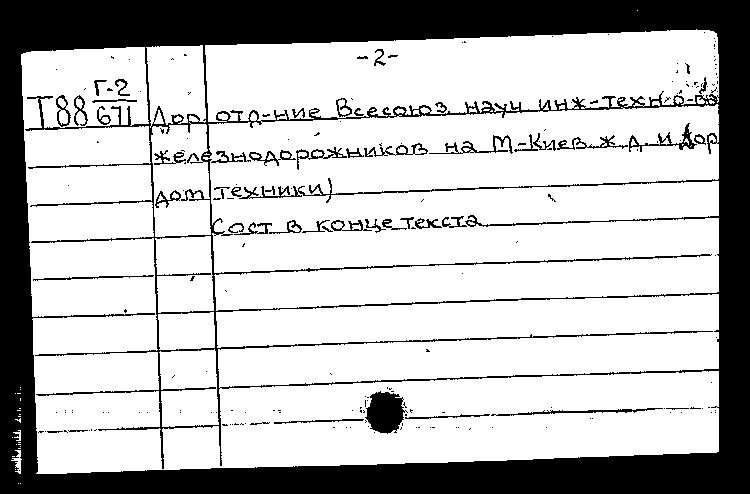 -2-
Т88 Г-2/671 Дор. отд-ние Всесоюз науч инж-техн о-ва
железнодорожников на М-Киев ж д и Дор
дом техники)
Сост в конце текста